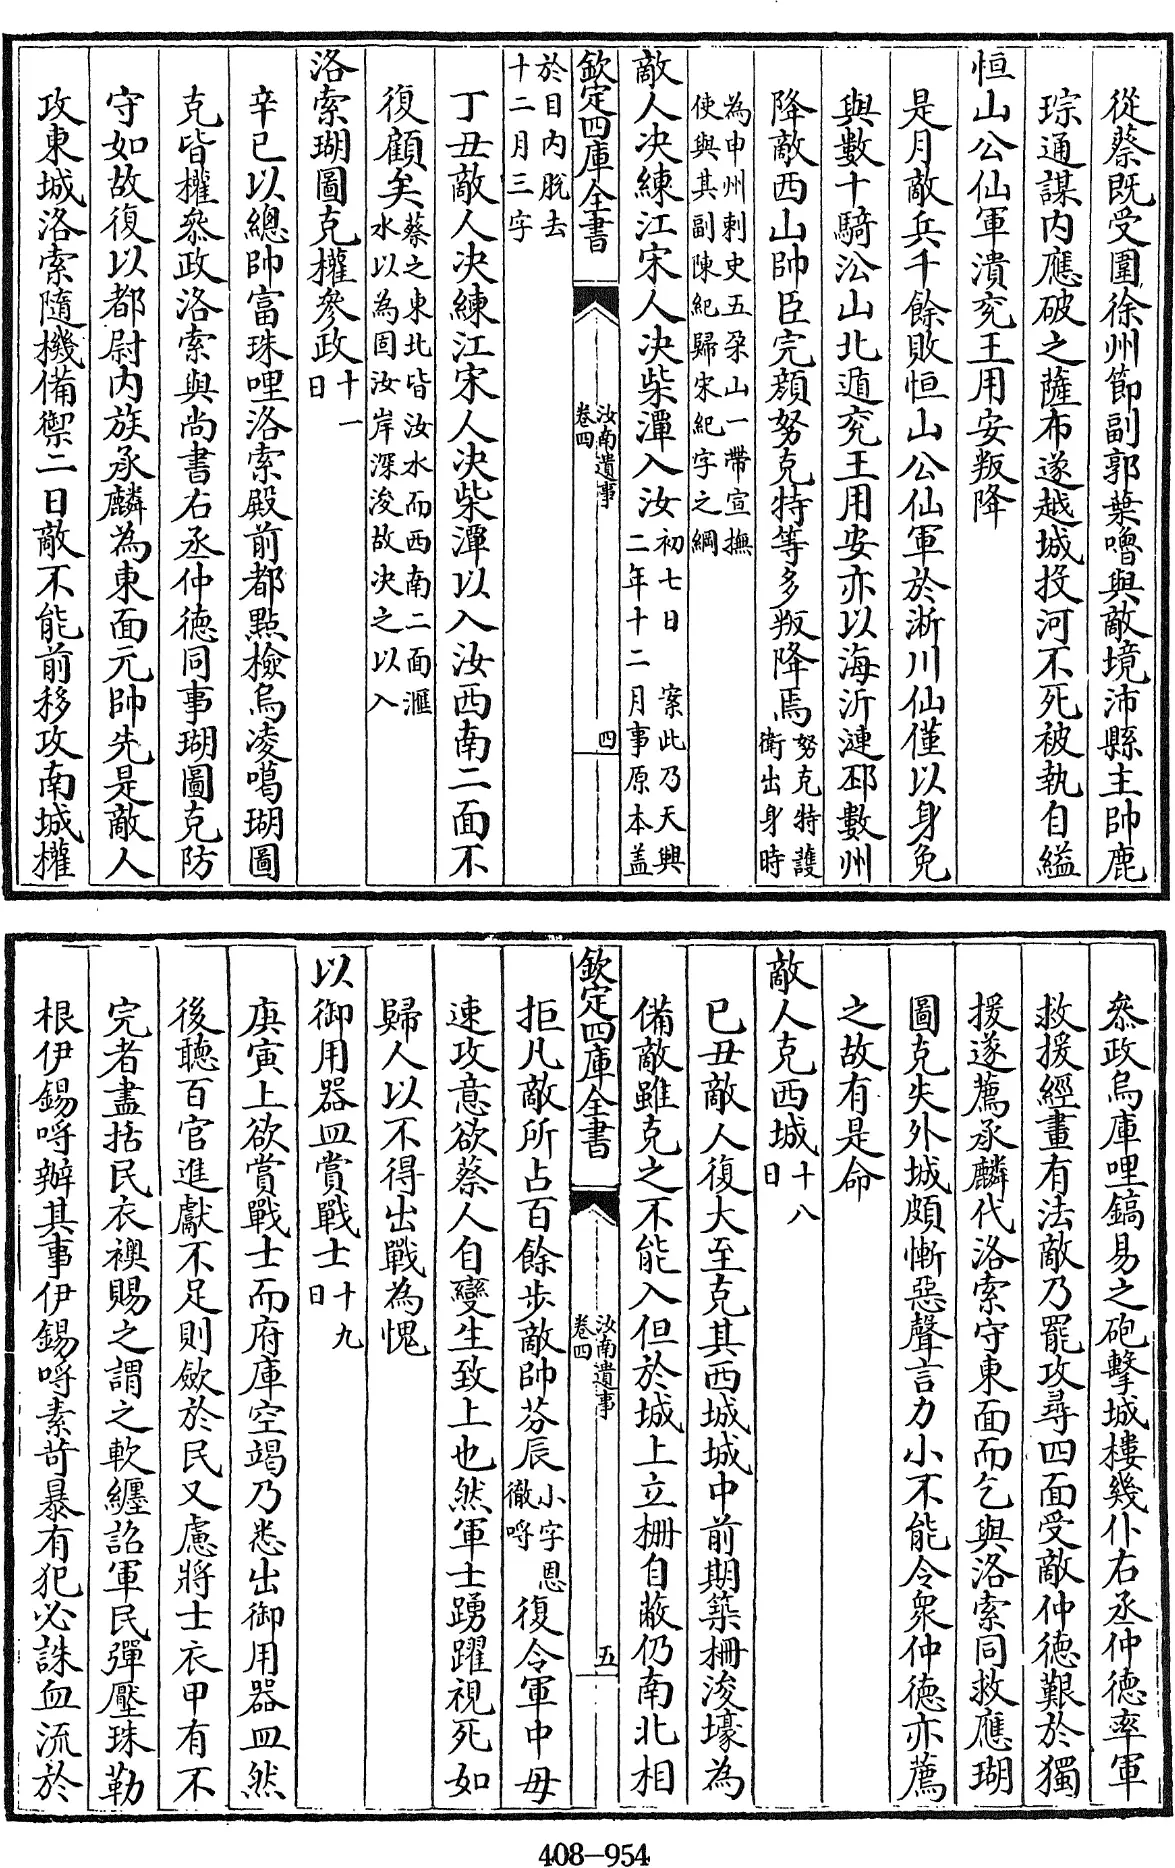 從蔡既受圍徐州節副郭葉嚕與敵境沛縣主帥鹿
琮通謀内應破之薩布遂越城投河不死被執自縊
恒山公仙軍潰兖王用安叛降
是月敵兵千餘敗恒山公仙軍於淅川仙僅以身免
與數十騎㳂山北遁兖王用安亦以海沂漣邳數州
降敵西山帥臣完顔努克特等多叛降焉努克特護
衛出身時
為申州刺史五朶山一帶宣撫
使與其副陳紀歸宋紀字之綱
敵人决練江宋人决柴潭入汝初七日 案此乃天興
二年十二月事原本盖
欽定四庫全書
汝南遺事
卷四
四
於目内脱去
十二月三字
丁丑敵人决練江宋人决柴潭以入汝西南二面不
復顧矣蔡之東北皆汝水而西南二面滙
水以為固汝岸深浚故决之以入
洛索瑚圖克權參政十一
日
辛巳以總帥富珠哩洛索殿前都點檢烏凌噶瑚圖
克皆權叅政洛索與尚書右丞仲德同事瑚圖克防
守如故復以都尉内族承麟為東面元帥先是敵人
攻東城洛索隨機備禦二日敵不能前移攻南城權
叅政烏庫哩鎬易之砲擊城樓幾仆右丞仲德率軍
救援經畫有法敵乃罷攻尋四面受敵仲德艱於獨
援遂薦承麟代洛索守東面而乞與洛索同救應瑚
圖克失外城頗慚惡聲言力小不能令衆仲德亦薦
之故有是命
敵人克西城十八
日
己丑敵人復大至克其西城城中前期築柵浚壕為
備敵雖克之不能入但於城上立柵自蔽仍南北相
欽定四庫全書
汝南遺事
卷四
五
拒凡敵所占百餘步敵帥芬辰小字恩
徹哷復令軍中毋
速攻意欲蔡人自變生致上也然軍士踴躍視死如
歸人以不得出戰為愧
以御用器皿賞戰士十九
日
庚寅上欲賞戰士而府庫空竭乃悉出御用器皿然
後聽百官進獻不足則歛於民又慮將士衣甲有不
完者盡括民衣襖賜之謂之軟纒詔軍民彈壓珠勒
根伊錫哷辦其事伊錫哷素苛暴有犯必誅血流於
408-954